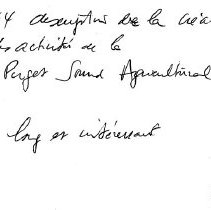 4 description de la créa
des activités de la
Puget Sound Agricultural
long et intéressant